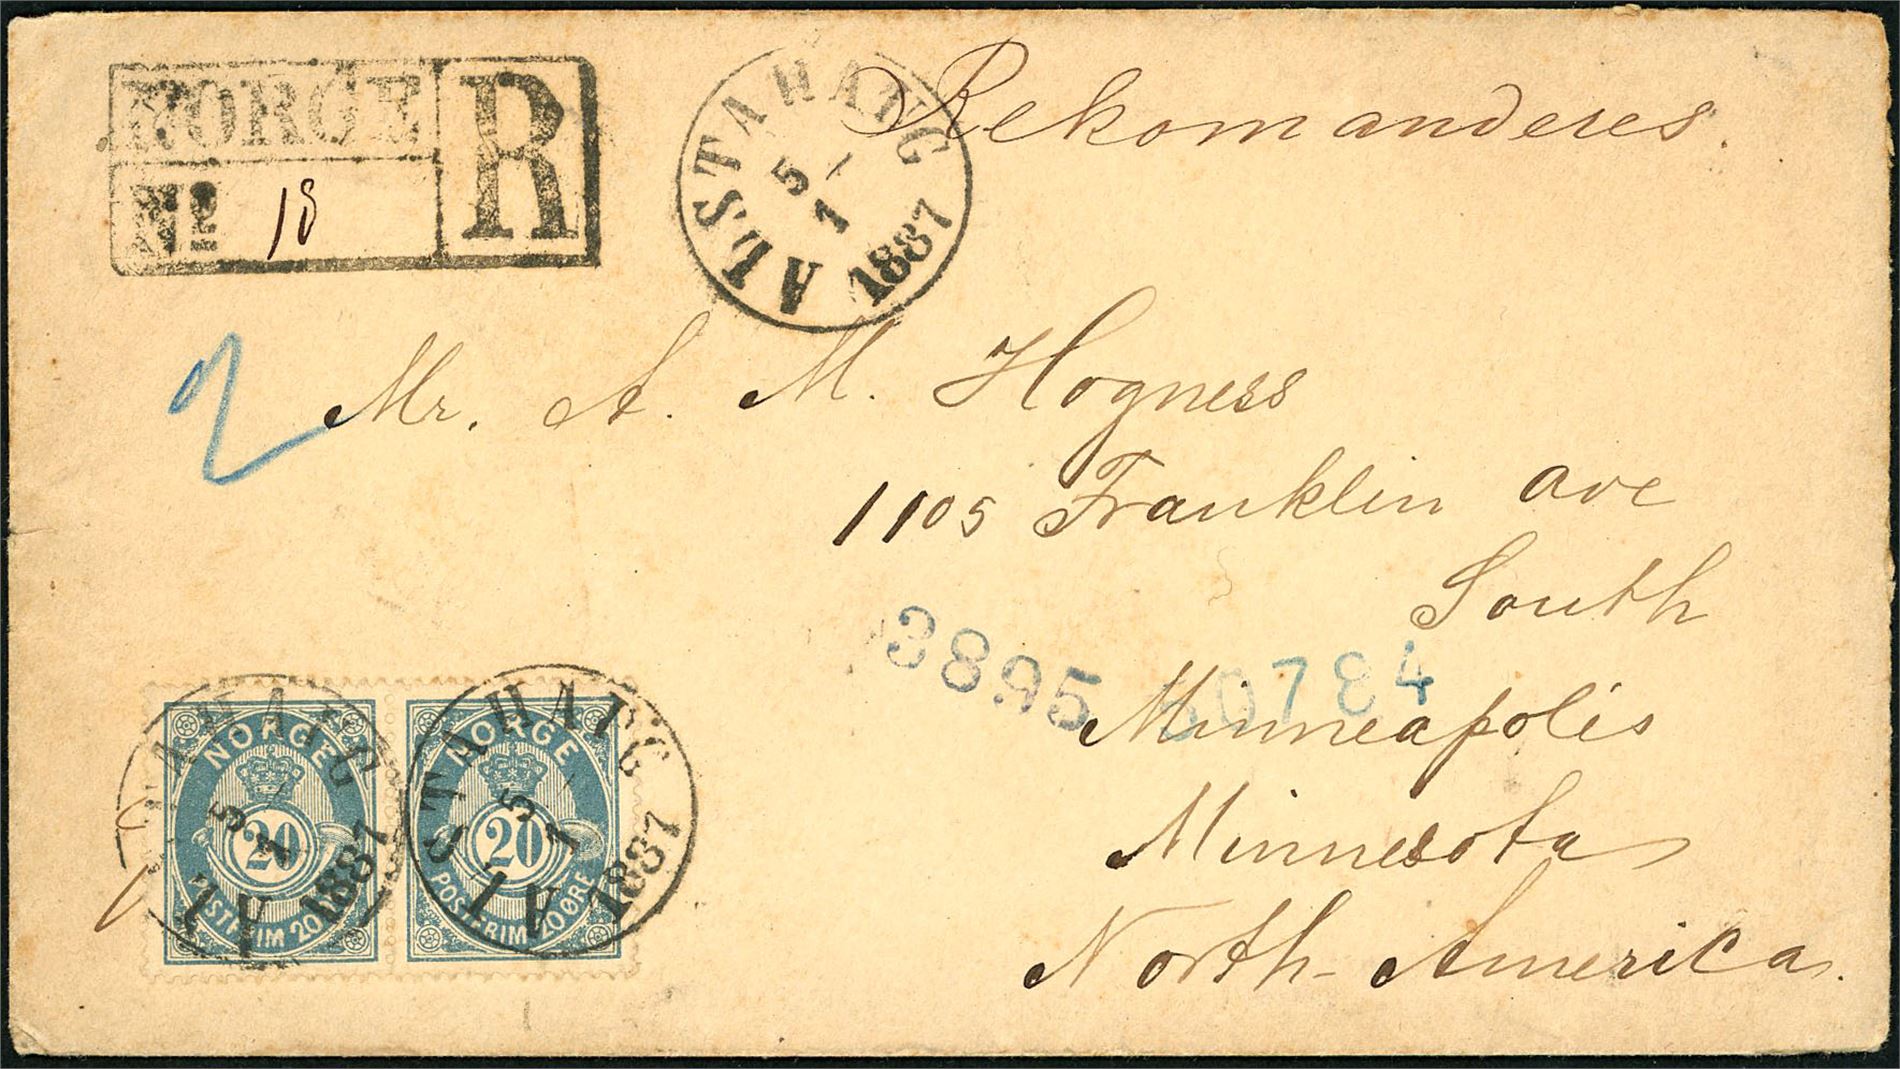 NORGE R
Nº 18
ALSTAHAUG
5
1
1887
Rekomanderes.
2
Mr. A. M. Hogness
1105 Franklin ave
South
3895 60784
Minneapolis
Minnesota
North-America.
ALSTAHAUG
5
1
1887
NORGE
20
POSTFRIM 20 ØRE
ALSTAHAUG
5
1
1887
NORGE
20
POSTFRIM 20 ØRE